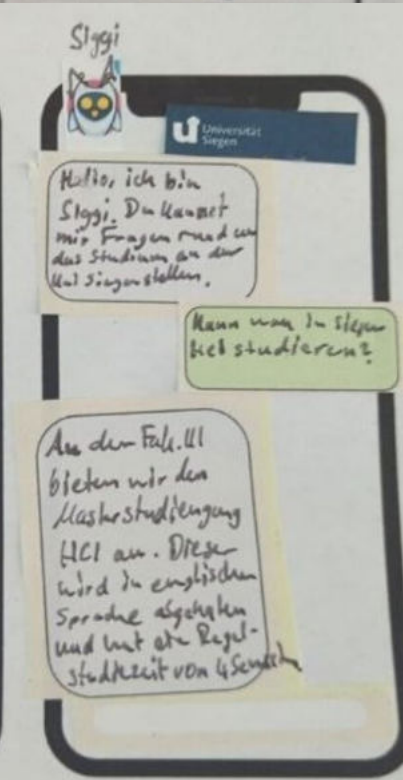 Siggi
Universität
Siegen
Hallo, ich bin
Siggi. Du kannst
mir Fragen rund um
das Studium an der
Uni Siegen stellen.
Kann man in Siegen
HCI studieren?
An der Fak. III
bieten wir den
Masterstudiengang
HCI an. Dieser
wird in englischer
Sprache abgehalten
und hat eine Regel-
studienzeit von 4 Semestern